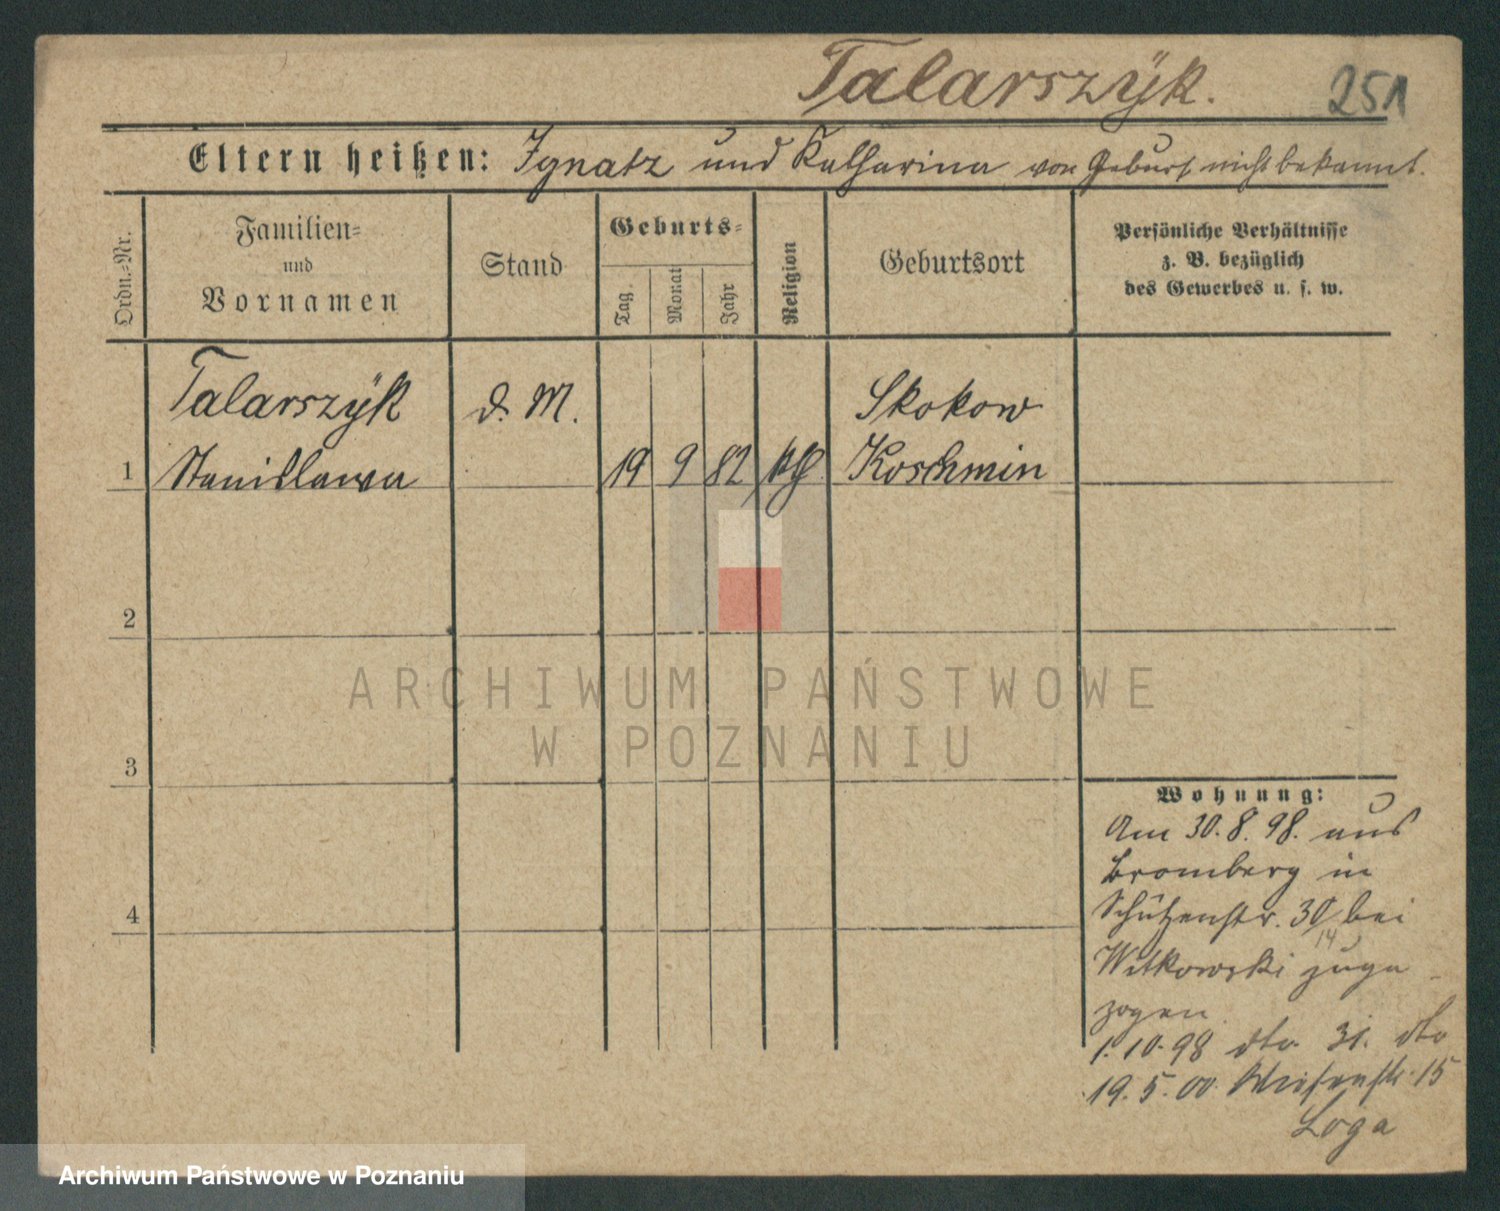 Talarszÿk.
251
Eltern heißen: Ignatz und Katharina von Geburt nicht bekannt.
Ordn.-Nr.
Familien-
und
Vornamen
Stand
Geburts-
Tag.
Monat
Jahr
Religion
Geburtsort
Persönliche Verhältnisse
z. B. bezüglich
des Gewerbes u. s. w.
Talarszÿk d. M. Skokow
1 Stanislawa 19 9 82 kth Koschmin
2
ARCHIWUM PAŃSTWOWE
W POZNANIU
3
Wohnung:
Am 30. 8. 98. aus
Bromberg in
4
Schützenstr. 30 bei
14
Witkowski zuge-
zogen.
1. 10. 98 dto 31. dto
19. 5. 00. Wiesenstr. 15
Loga
Archiwum Państwowe w Poznaniu